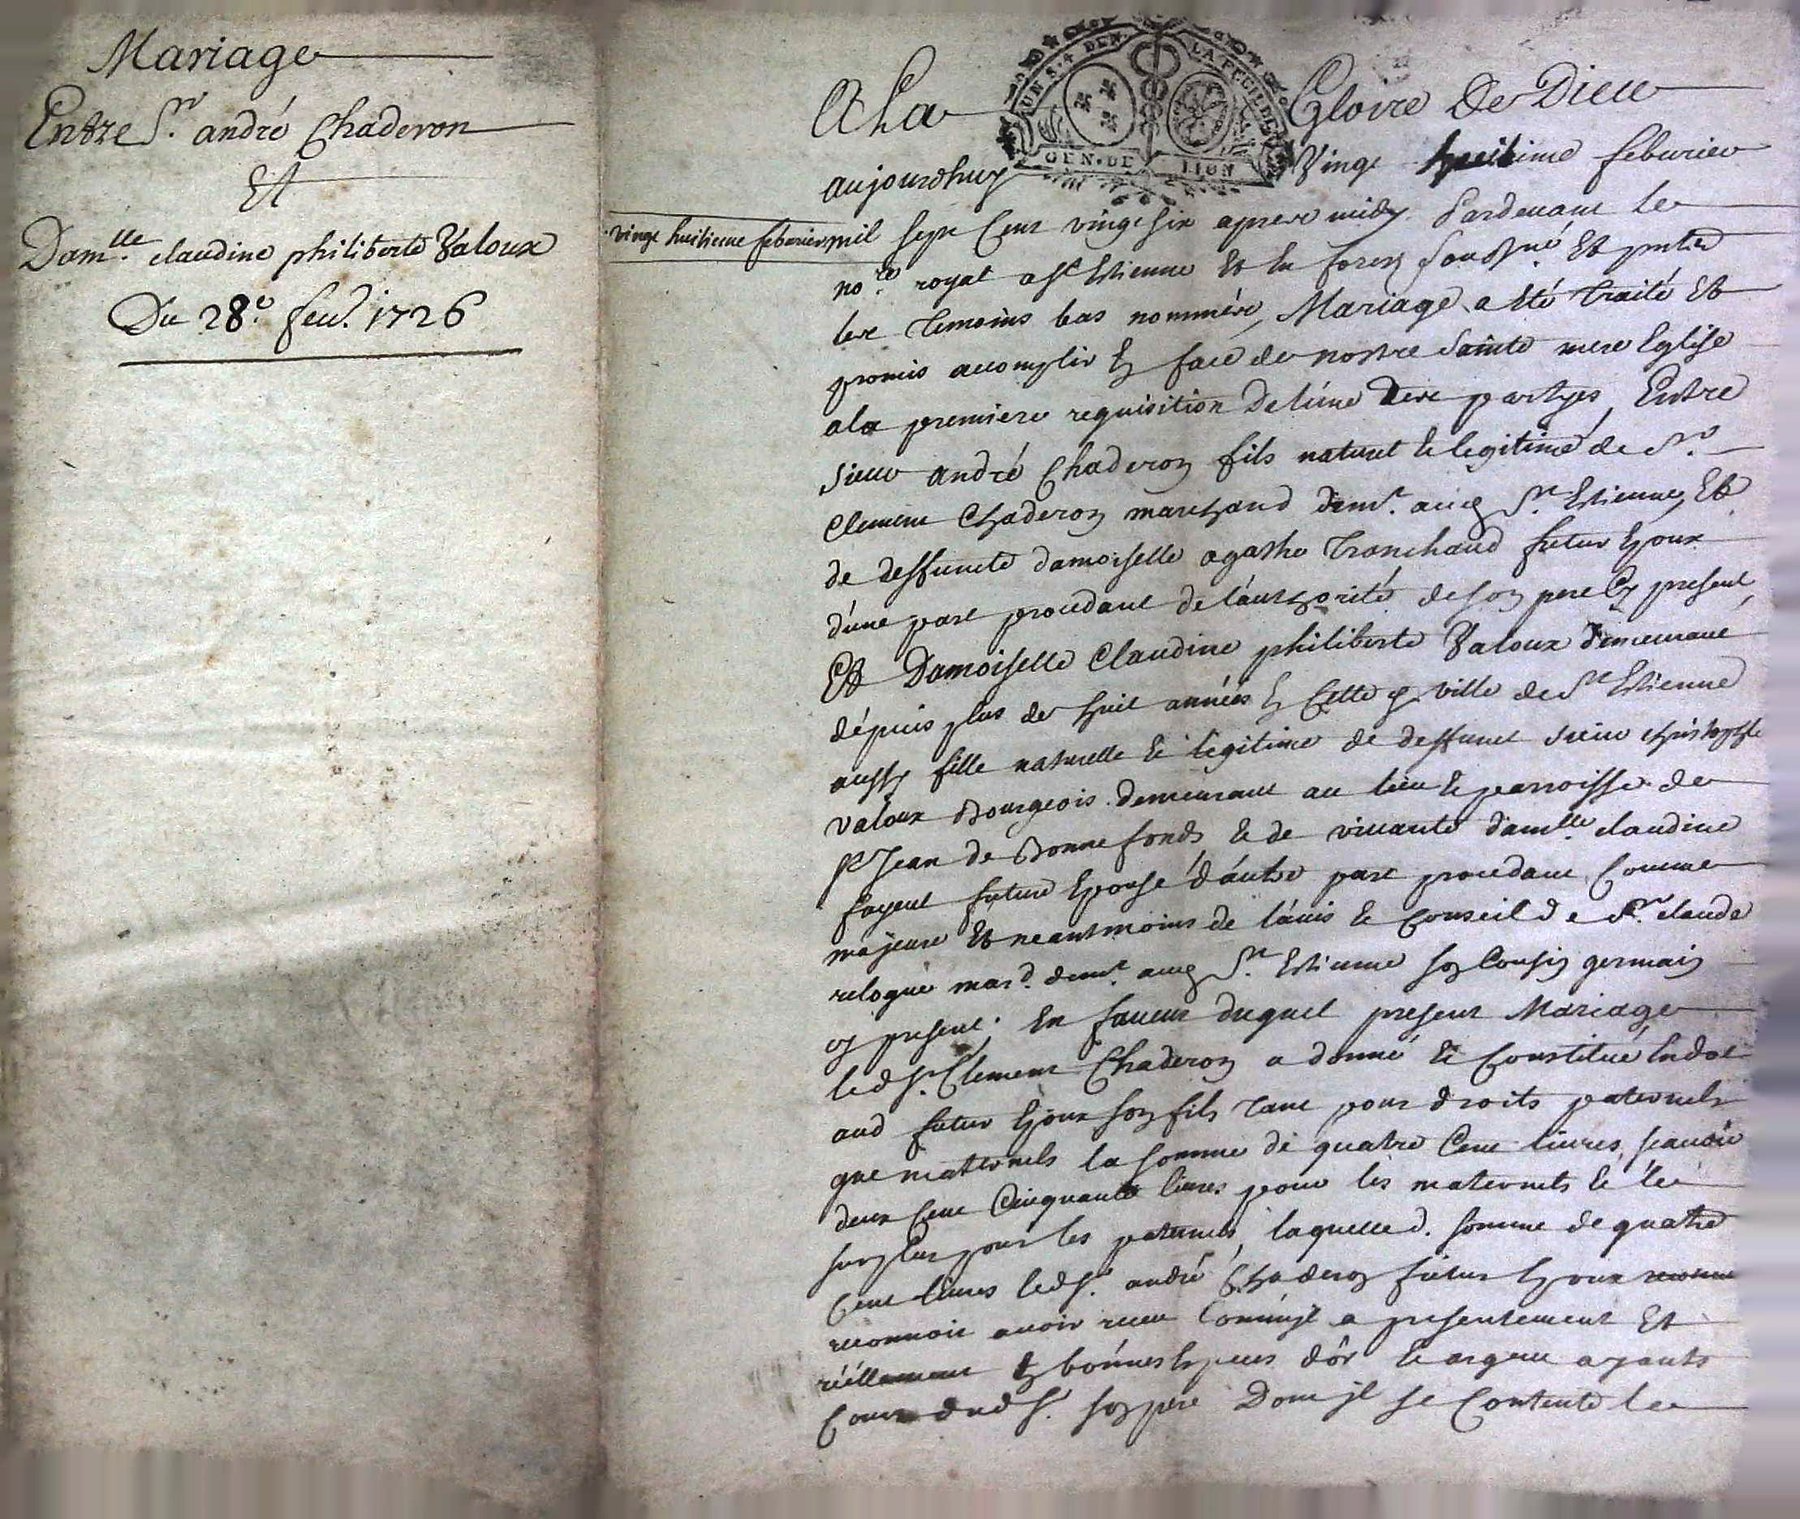 Mariage
Entre Sr. andré Chaderon
Et
Damlle. claudine philiberte Valoux
Du 28e. feu. 1726
A La Gloire De Dieu
DEUX S. 4 DEN. LA FEUILLE
GEN. DE LION
aujourdhuy Vingt huitième feburier
vingt huitieme feburier mil sept Cent vingt six apres midy Pardeuant le
nore. royal a St Etienne Et En forest soussné Et pntes
les Temoins bas nommés, Mariage a Eté Traité Et
promis accomplir En face de nostre Sainte mere Eglise
a la premiere requisition De lune Des partyes, Entre
sieur andré Chaderon fils naturel & legitime de Sr.
Clement Chaderon marchand demt. aud St. Etienne, Et
de deffuncte damoiselle agathe Tranchand futur Epoux
d'une part procedant de l'authorité de son pere Cy present,
Et Damoiselle Claudine philiberte Valoux demeurant
dépuis plus de huit années En Cette ville de St Etienne
aussy fille naturelle & légitime de deffunct sieur christophle
valoux Bourgeois demeurant au lieu & parroisse de
St Jean de Bonnefonds & de viuante damlle claudine
fayeul future Epouse d'autre part procedant Comme
majeure Et neantmoins de l'auis & Conseil de Sr. claude
relogue mard. demt. aud St. Etienne son Cousin germain
cy present. En faueur duquel present Mariage
led Sr. Clement Chaderon a donné & Constitué En dot
aud futur Epoux son fils tant pour droits paternels
que maternels la somme de quatre Cent liures, scauoir
deux Cent Cinquante liures pour les maternels & le
surplus pour les paternels, laquelle d. somme de quatre
Cent liures led Sr. andré Chaderon futur Epoux
reconnoit auoir receu Comme a presentement Et
réellement En bonnes Especes d'ôr & argent ayants
Cours dud Sr. son pere Dont jl se Contente les